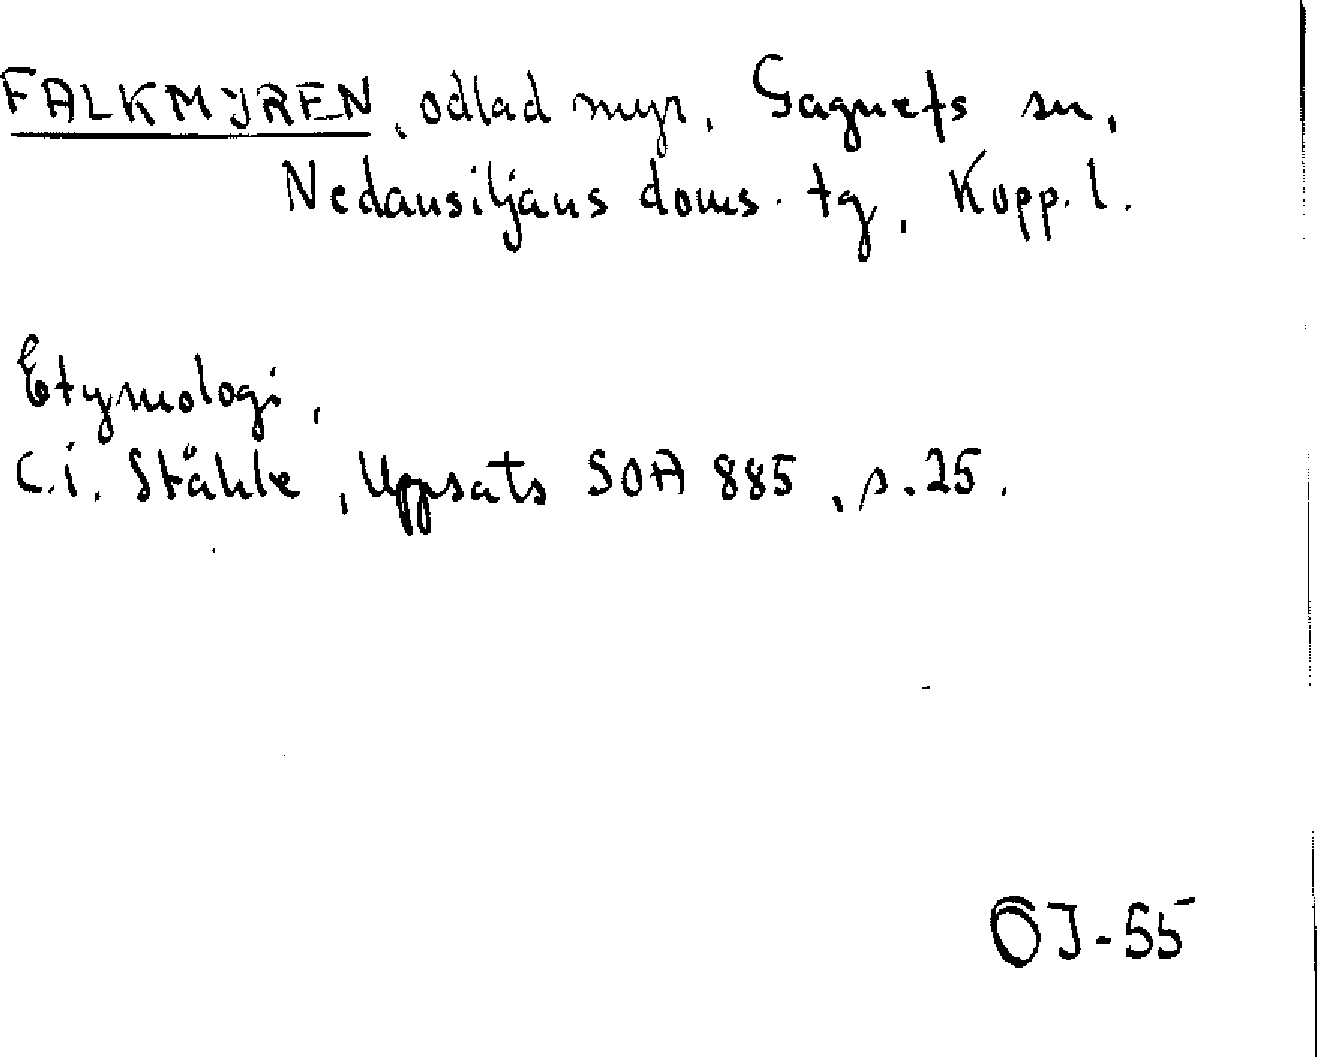 FALKMYREN, odlad myr, Gagnefs sn,
Nedansiljans doms. tg, Kopp. l.
Etymologi,
C.i. Ståhle, Uppsats SOA 885, s. 25.
OJ-55